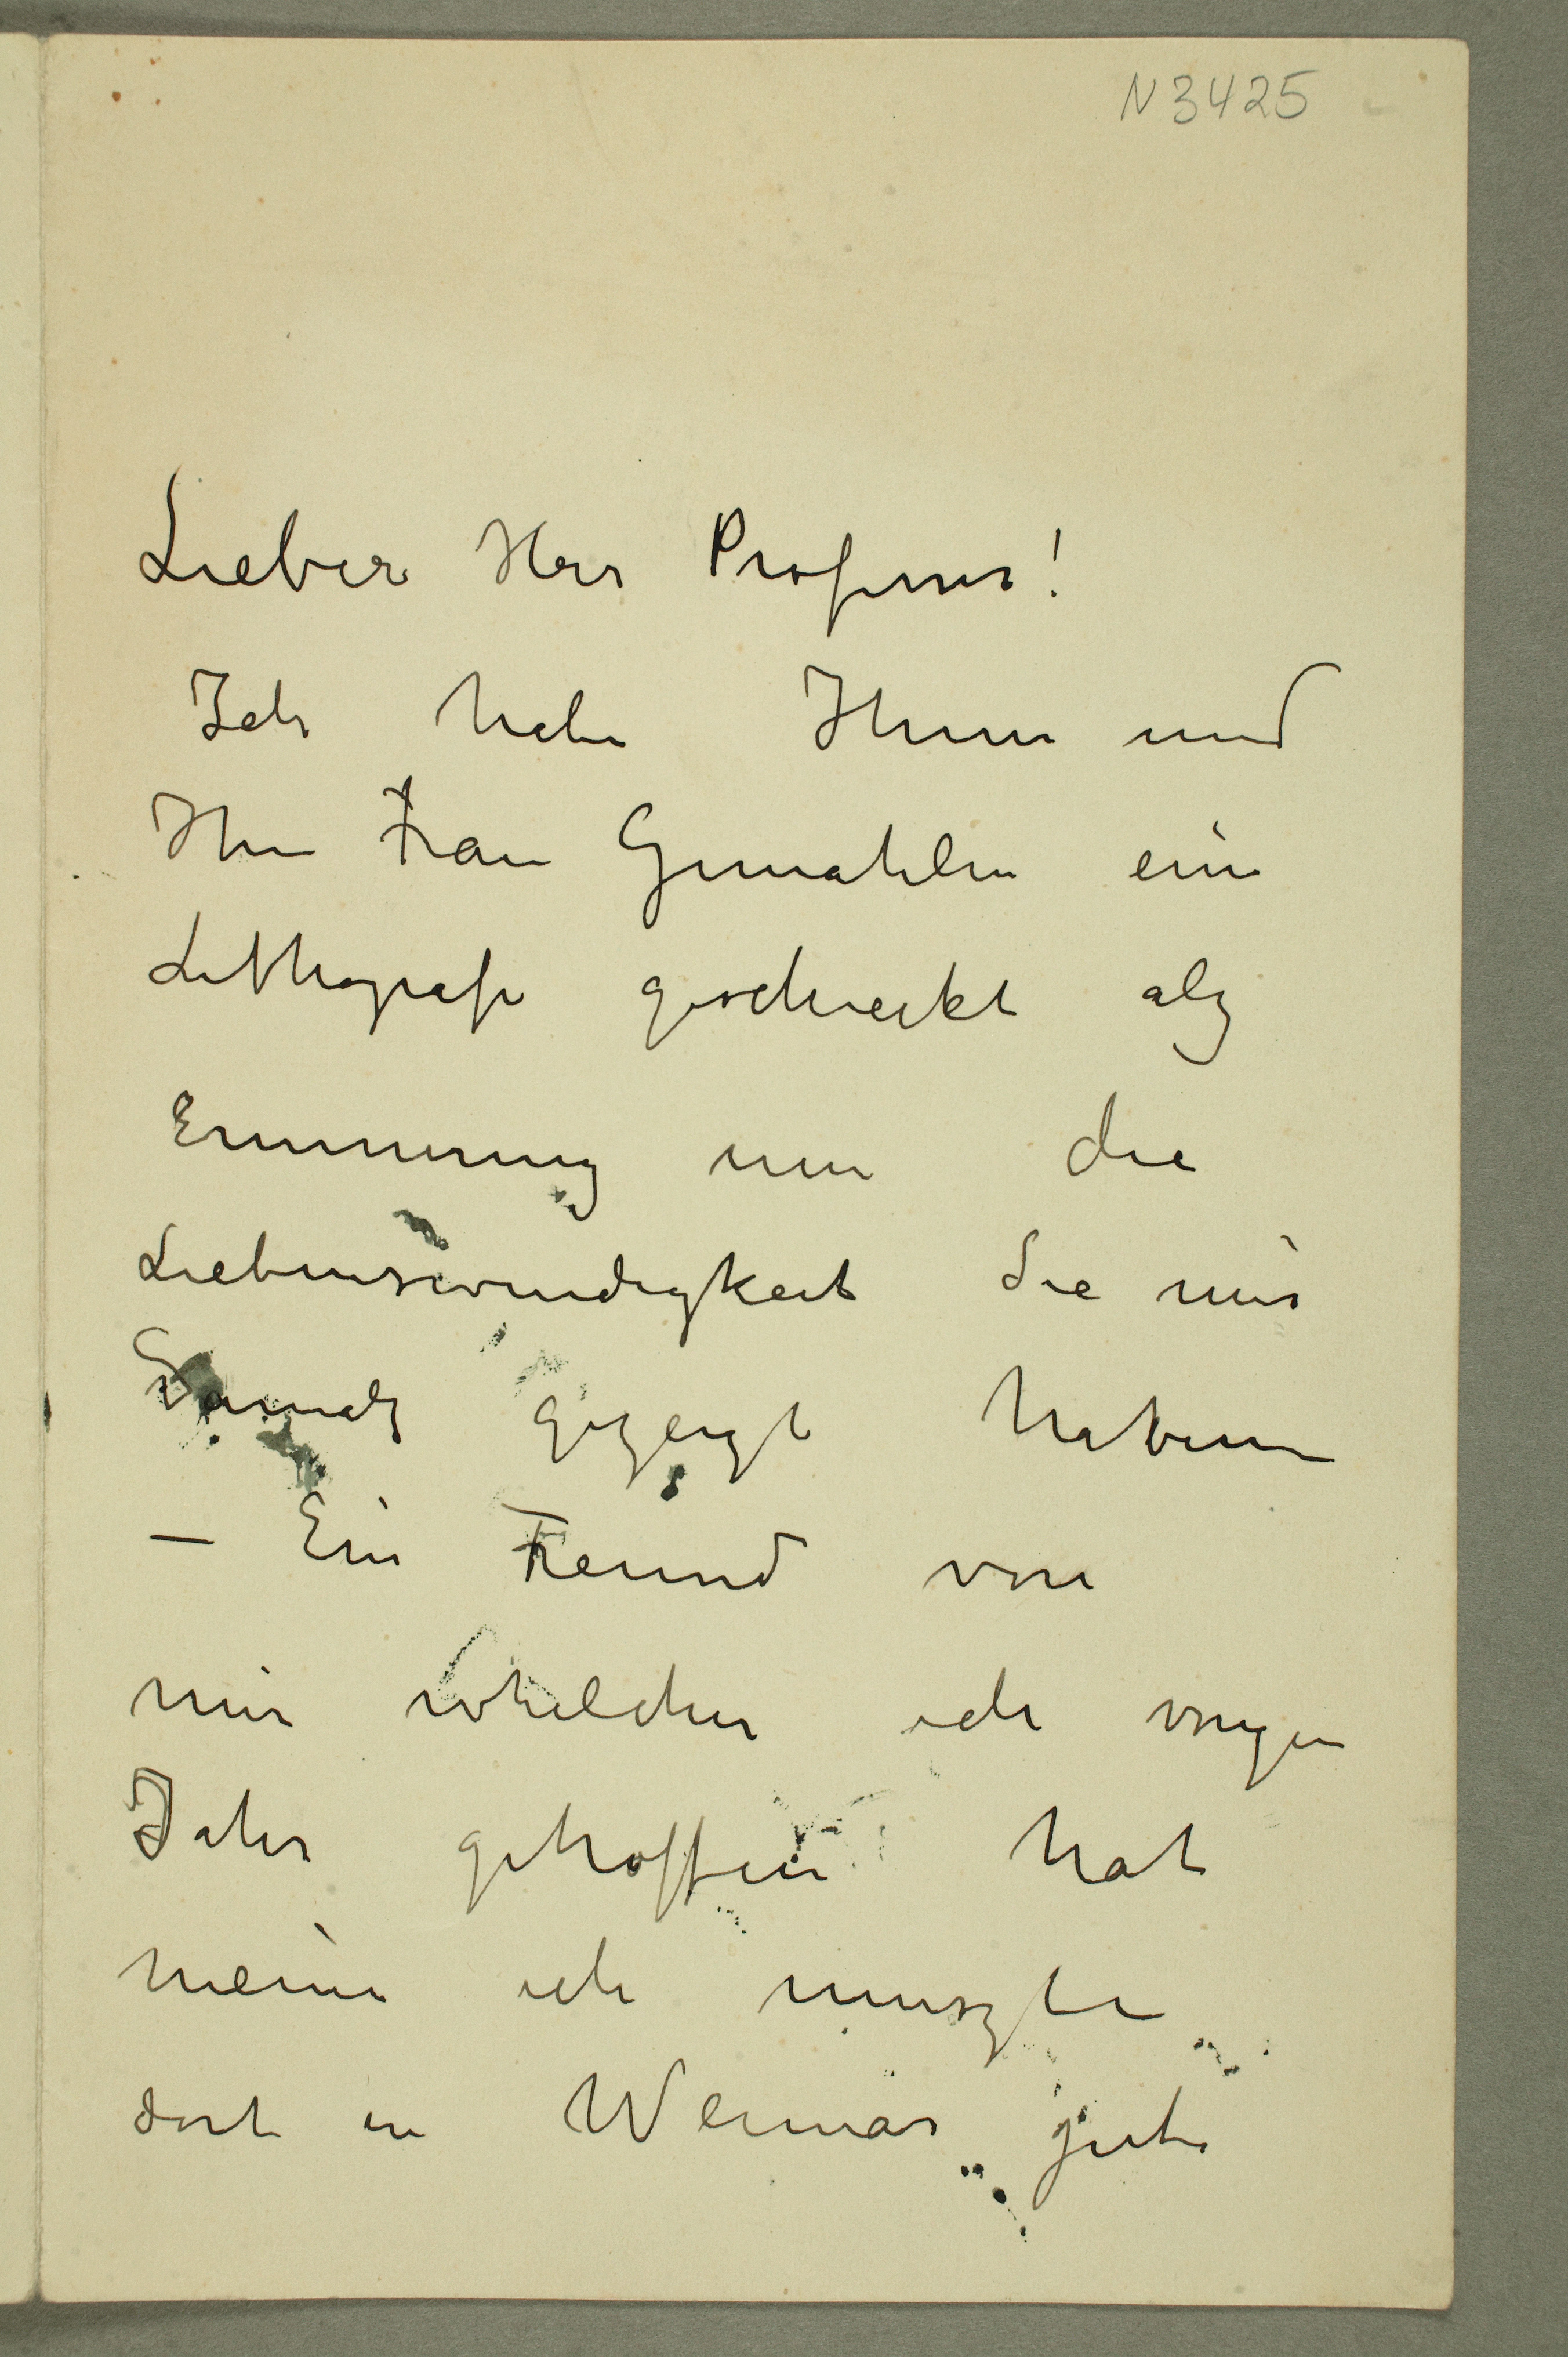 N 3425
Lieber Herr Professor!
Ich habe Ihnen und
Ihre Frau Gemahlin ein
Lithografi geschieckt als
Erinnerung um die
Liebenswurdigkeit Sie mir
damals gezeigt haben
– Ein Freund von
mir whelcher ich vorigen
Jahr getroffen hat
meine ich muszte
dort in Weimar